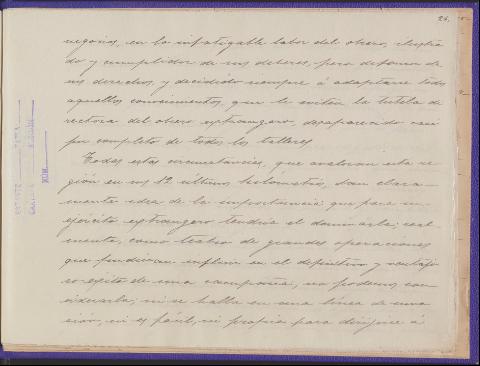 24.
negocios, en la infatigable labor del obrero, ilustra-
do y cumplidor de sus deberes, pero defensor de
sus derechos, y decidido siempre á adaptarse todos
aquellos conocimientos, que le eviten la tutela di-
rectora del obrero extrangero, desaparecido casi
por completo de todos los talleres.
Todas estas circunstancias, que avaloran esta re-
gión en sus 12 últimos kilómetros, dan clara-
mente idea de la importancia que para un
ejército extrangero tendría el dominarla; real-
mente, como teatro de grandes operaciones
que pudieran influir en el definitivo y ventajo-
so éxito de una campaña, no podemos con-
siderarla; ni se halla en una línea de inva-
sión, ni es fácil, ni propia para dirigirse á
NUM.